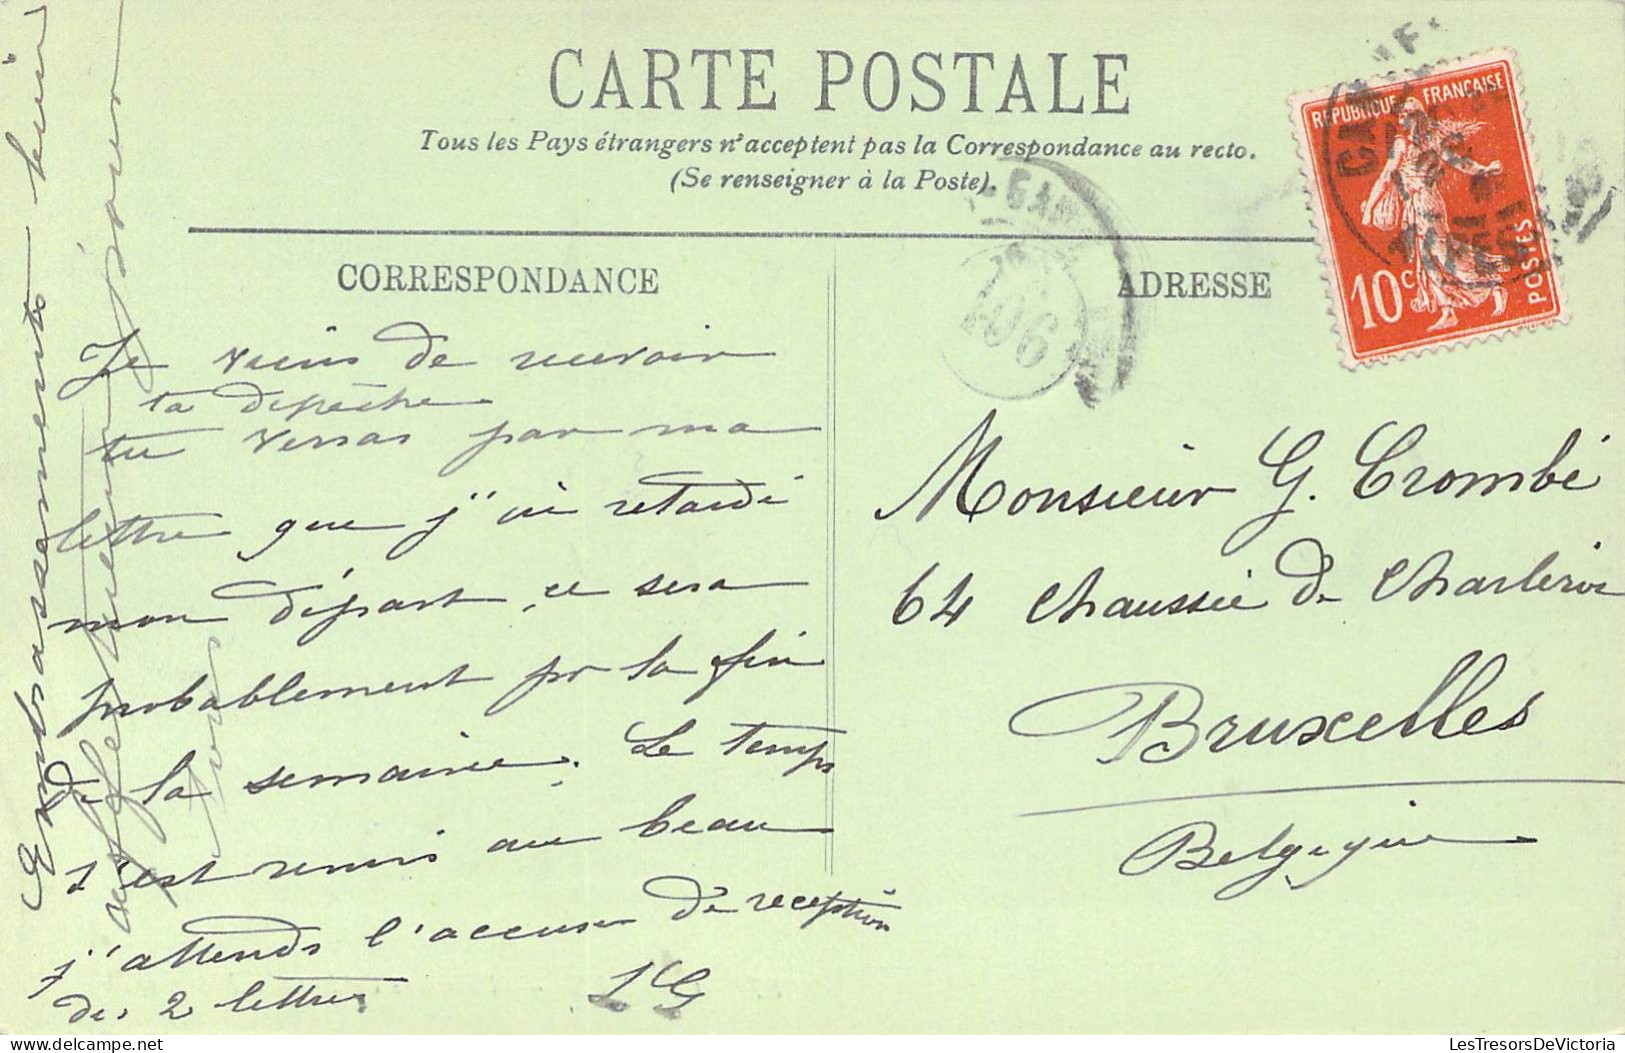 CARTE POSTALE
Tous les Pays étrangers n'acceptent pas la Correspondance au recto.
(Se renseigner à la Poste).
CORRESPONDANCE
ADRESSE
REPUBLIQUE FRANÇAISE
10c
POSTES
Je viens de recevoir
ta dépêche
tu verras par ma
lettre que j'ai retardé
mon départ, ce sera
probablement pr la fin
de la semaine. Le temps
s'est remis au beau
j'attends l'accuser de reception
des 2 lettres
LG
Embrassements
affectueux pour
Monsieur G. Crombé
64 Chaussée de Charleroi
Bruxelles
Belgique
LesTresorsDeVictoria